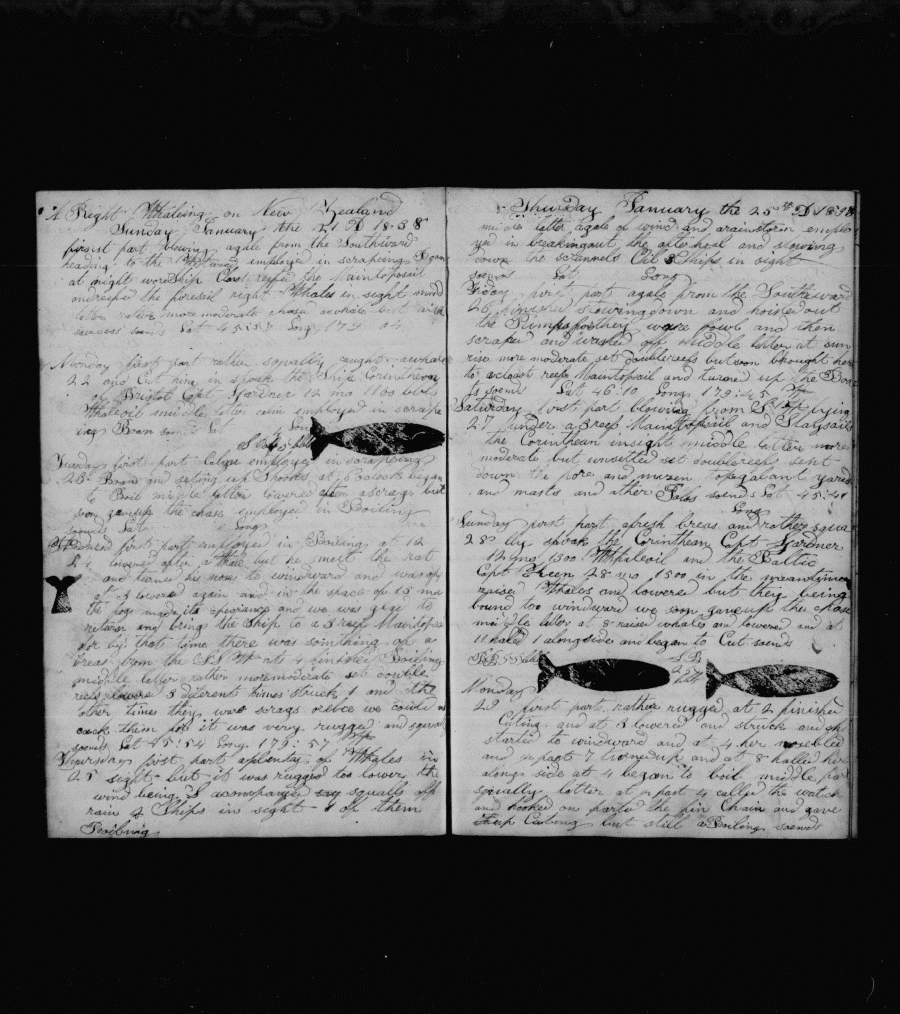 A Right Whaleing on New Zealand
Sunday January the 21 AD 1838
first part blowing agale from the Southward
heading to the employed in scrapeing Bone
at night wore Ship Clost reefed the Maintopsail
and reefed the foresail right Whales in sight midd
latter rative more moderate chasn awhale but with
success soends Lat 45:57 Long 179 04
Munday first part rather squally caught awhale
22 and Cut him in spoak the Ship Corinthean
of Bristol Capt Gardner 12 mo 1100 bbls
Whaleoil middle latter calm employed in scrape
ing Bone soends Lat Long
Tuesday first part Calm employed in scrapeing
23 Bone and seting up Shooks at 6 oclock began
to Boil middle latter lowered after ascrag but
soon gaveup the chase employed in Boiling
soends Latt Long
Wednesd first part employed in Boiling at 12
24 lowered after a Whale but he smelt the rat
and turned his nose to windward and was of
at 3 lowered again and in the space of 15 ma
the fog made its apearance and we was glad to
return and bring the Ship to a 3 reef Maintopsa
for by that time there was somthing of a
breas from the SSW at 4 finished Boiling
middle latter rather more moderate set double
reefs lowered 3 diferents times struck 1 and the
other time they ware scrags oelce we could
cach them for it was very rugged and squaly
soends Lat 45:54 Long 179:57
Thursday first part aplenty of Whales in
25 sight but it was rugged too lower the
wind being S acompanied by squalls off
rain 2 Ships in sight 1 of them
Boibing
Thursday January the 25th AD 1838
middle latter agale of wind and arainstorm employ
yed in breakingout the afterheal and stowing
down the scrannels Oil 3 Ships in sight
soends Lat Long
Friday first part agale from the Southward
26 finished stowingdown and hoisted out
the Pumps forthey ware fowl and then
scraped and washed off middle latter at sun
rise more moderate set doublereefs but soon brought her
to aclost reef Maintopsail and turned up the Bone
so soends Lat 46:10 Long 179:45
Saturday first part blowing from SW lying
27 under a 3 reef Maintopsail and Staysails
the Corinthean insight middle latter more
moderate but unsetled set doublereefs sent
down the fore and mizen topgalant yards
and masts and other Jobs soends Lat 45:41
Long
Sunday first part afresh breas and rather squa
28 lly spoak the Corinthean Capt Gardner
12 mo 1300 Whaleoil and the Baltic
Capt Green 28 mo 1500 in the meantime
raised Whales and lowered but they being
bound too windward we soon gaveup the chase
middle latter at 8 raised whales and lowered and at
11 1 alongside and began to Cut soends
Monday
29 first part rather rugged at 2 finished
Cuting and at 3 lowered and struck and she
started to windward and at 4 her nosebled
and past 7 turned up and at 8 halled her
along side at 4 began to boil middle part
squally latter at part 4 called the watch
and hooked on parted the fin Chain and gave
sheep Cuteng but still aBoiling soends